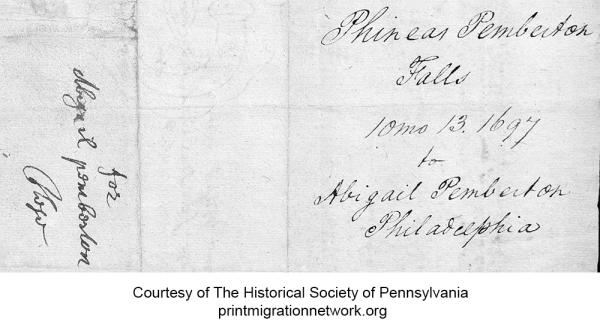 for
Abigail pemberton
Phineas Pemberton
Falls
10mo 13. 1697
to
Abigail Pemberton
Philadelphia
Courtesy of The Historical Society of Pennsylvania
printmigrationnetwork.org